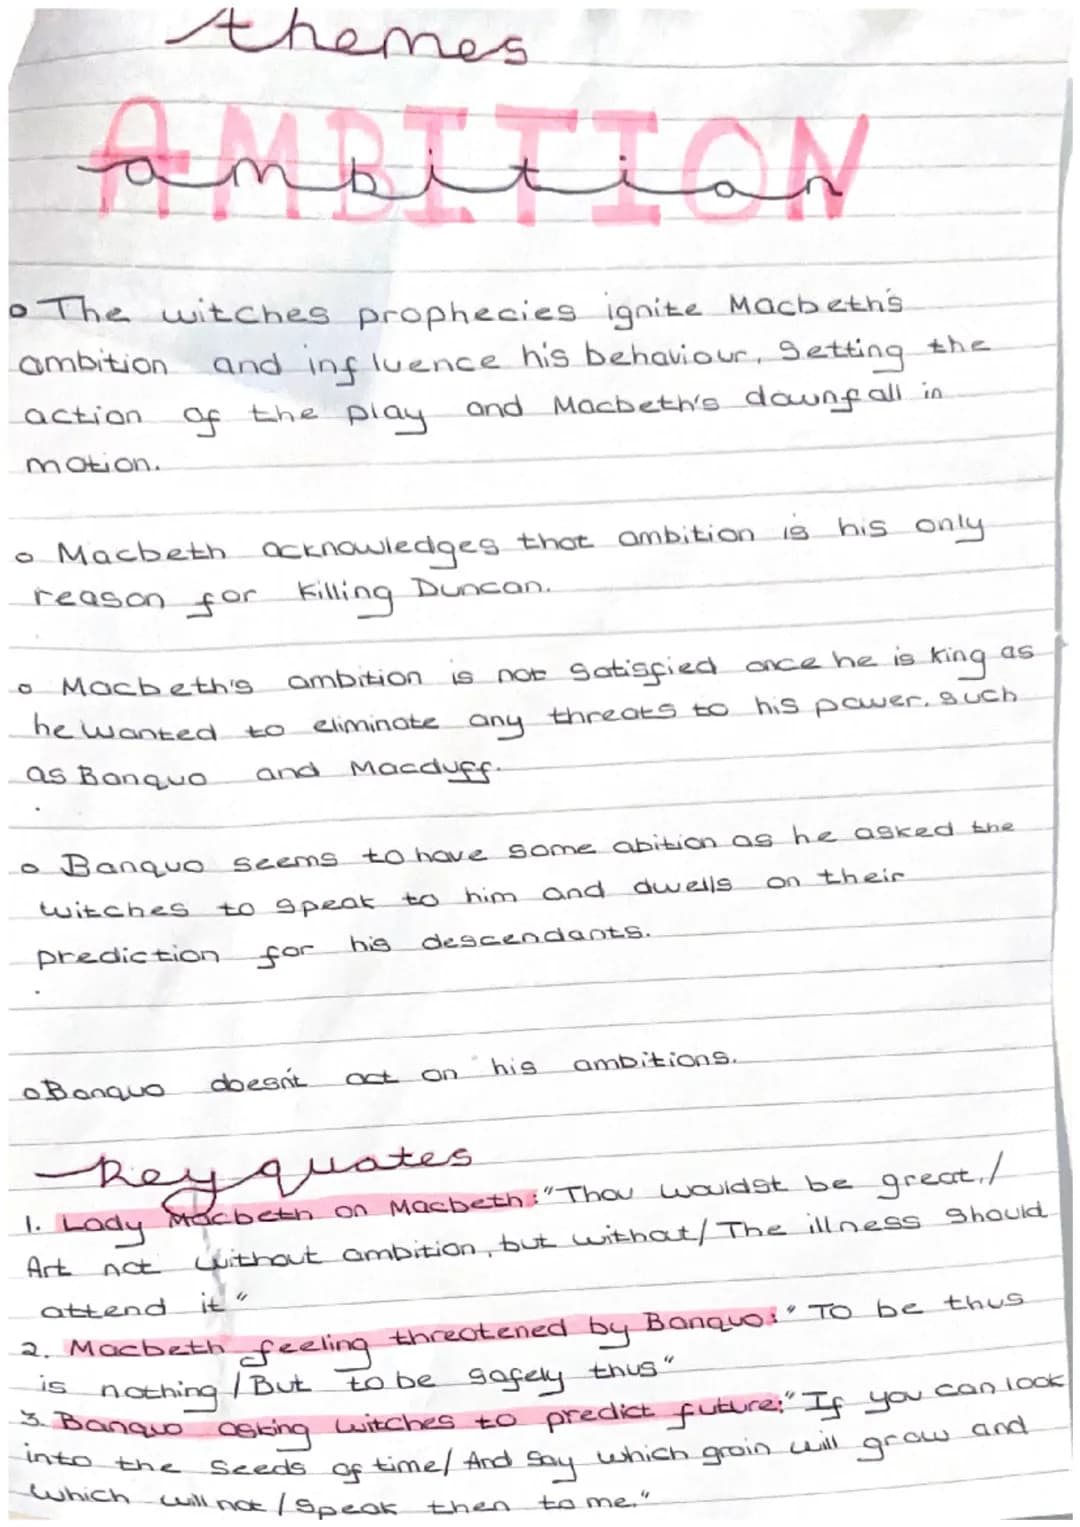 themes
AMBITION
ambition
The witches prophecies ignite Macbeth's
ambition and influence his behaviour, setting the
action of the play and Macbeth's downfall in
motion.
Macbeth acknowledges that ambition is his only
reason for killing Duncan.
Macbeth's ambition is not satisfied once he is king as
he wanted to eliminate any threats to his power, such
as Banquo and Macduff.
Banquo seems to have some abition as he asked the
witches to speak to him and dwells on their
prediction for his descendants.
Banquo doesn't act on his ambitions.
Key quotes
1. Lady Macbeth on Macbeth: "Thou wouldst be great, /
Art not without ambition, but without / The illness should
attend it"
2. Macbeth feeling threatened by Banquo: "To be thus
is nothing / But to be safely thus"
3. Banquo asking witches to predict future: "If you can look
into the seeds of time / And say which grain will grow and
which will not / speak then to me."